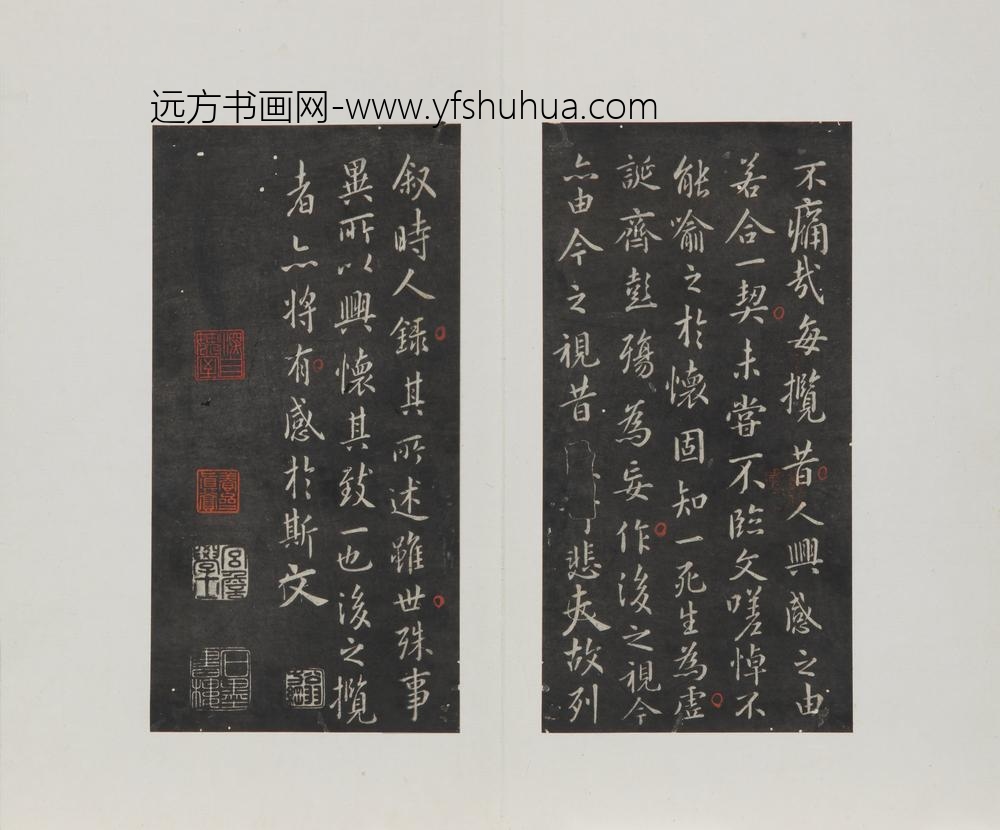 远方书画网-www.yfshuhua.com
不痛哉每攬昔人興感之由
若合一契未嘗不臨文嗟悼不
能喻之於懷固知一死生為虛
誕齊彭殤為妄作後之視今
亦由今之視昔
悲夫故列
叙時人錄其所述雖世殊事
異所以興懷其致一也後之攬
者亦將有感於斯文